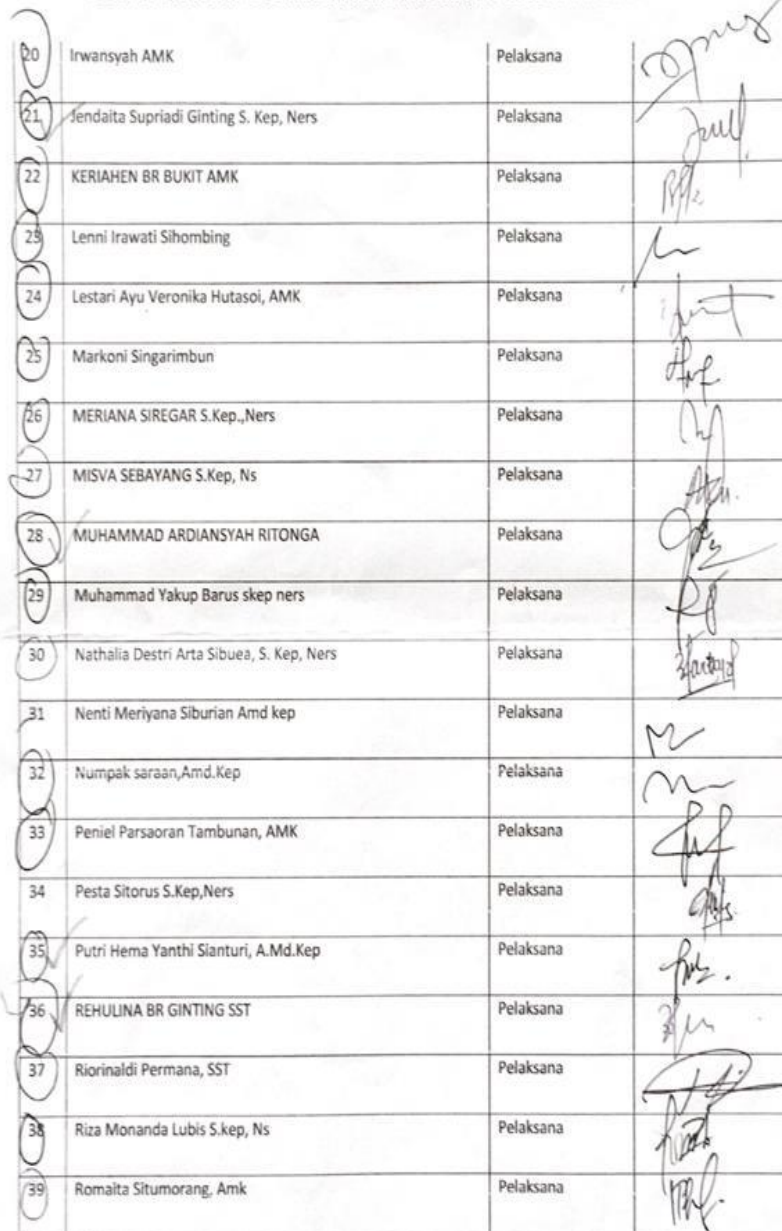 20 Irwansyah AMK Pelaksana
21 Jendaita Supriadi Ginting S. Kep, Ners Pelaksana
22 KERIAHEN BR BUKIT AMK Pelaksana
23 Lenni Irawati Sihombing Pelaksana
24 Lestari Ayu Veronika Hutasoi, AMK Pelaksana
25 Markoni Singarimbun Pelaksana
26 MERIANA SIREGAR S.Kep.,Ners Pelaksana
27 MISVA SEBAYANG S.Kep, Ns Pelaksana
28 MUHAMMAD ARDIANSYAH RITONGA Pelaksana
29 Muhammad Yakup Barus skep ners Pelaksana
30 Nathalia Destri Arta Sibuea, S. Kep, Ners Pelaksana
31 Nenti Meriyana Siburian Amd kep Pelaksana
32 Numpak saraan,Amd.Kep Pelaksana
33 Peniel Parsaoran Tambunan, AMK Pelaksana
34 Pesta Sitorus S.Kep,Ners Pelaksana
35 Putri Hema Yanthi Sianturi, A.Md.Kep Pelaksana
36 REHULINA BR GINTING SST Pelaksana
37 Riorinaldi Permana, SST Pelaksana
38 Riza Monanda Lubis S.kep, Ns Pelaksana
39 Romaita Situmorang, Amk Pelaksana